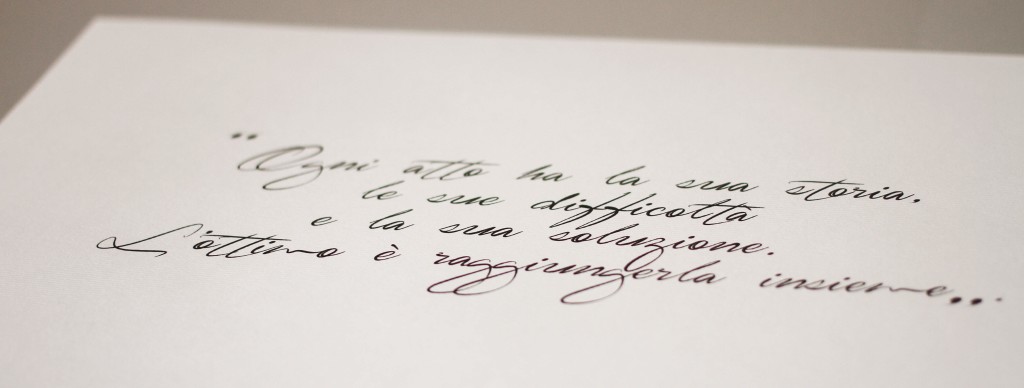 "Ogni atto ha la sua storia,
le sue difficoltà
e la sua soluzione.
L'ottimo è raggiungerla insieme..."